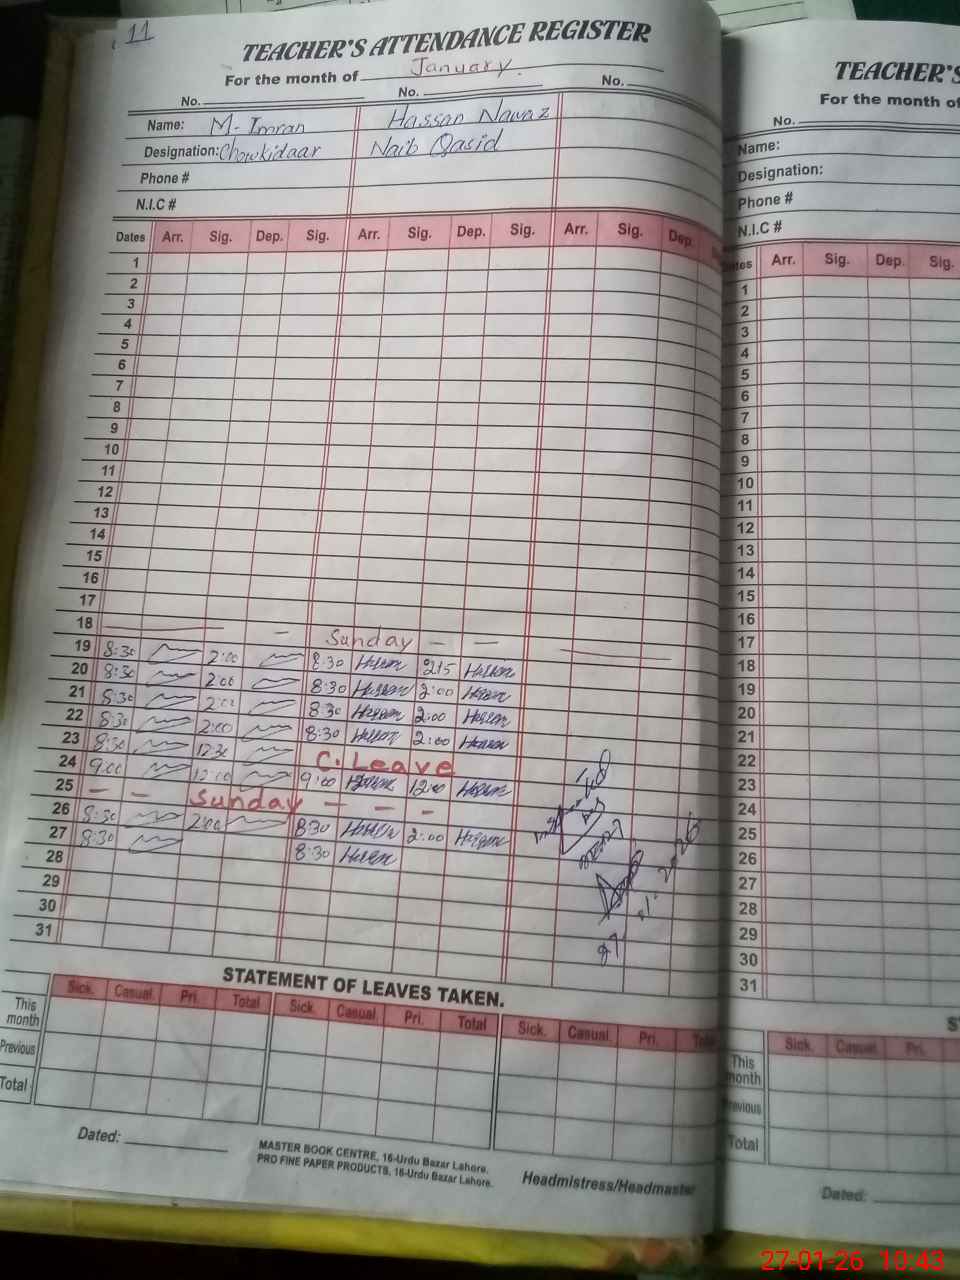 11
TEACHER'S ATTENDANCE REGISTER
For the month of January.
No. No. No.
Name: M. Imran Hassan Nawaz
Designation: Chowkidaar Naib Qasid
Phone #
N.I.C #
Dates Arr. Sig. Dep. Sig. Arr. Sig. Dep. Sig. Arr. Sig. Dep.
1
2
3
4
5
6
7
8
9
10
11
12
13
14
15
16
17
18 — Sunday — —
19 8:30 2:00 8:30 Hassan 2:15 Hassan
20 8:30 2:00 8:30 Hassan 2:00 Hassan
21 8:30 2:00 8:30 Hassan 2:00 Hassan
22 8:30 2:00 8:30 Hassan 2:00 Hassan
23 8:30 12:30 C. Leave
24 9:00 12:00 9:00 Hassan 12:00 Hassan
25 — — Sunday — — —
26 8:30 2:00 8:30 Hassan 2:00 Hassan
27 8:30 8:30 Hassan
28
29
30
31
STATEMENT OF LEAVES TAKEN.
Sick. Casual. Pri. Total Sick. Casual. Pri. Total Sick. Casual. Pri. Total
This month
Previous
Total
Dated:
MASTER BOOK CENTRE, 16-Urdu Bazar Lahore.
PRO FINE PAPER PRODUCTS, 16-Urdu Bazar Lahore.
Headmistress/Headmaster
TEACHER'S
For the month of
No.
Name:
Designation:
Phone #
N.I.C #
Dates Arr. Sig. Dep. Sig.
1
2
3
4
5
6
7
8
9
10
11
12
13
14
15
16
17
18
19
20
21
22
23
24
25
26
27
28
29
30
31
Sick. Casual. Pri.
This month
Previous
Total
Dated:
27-01-26 10:43